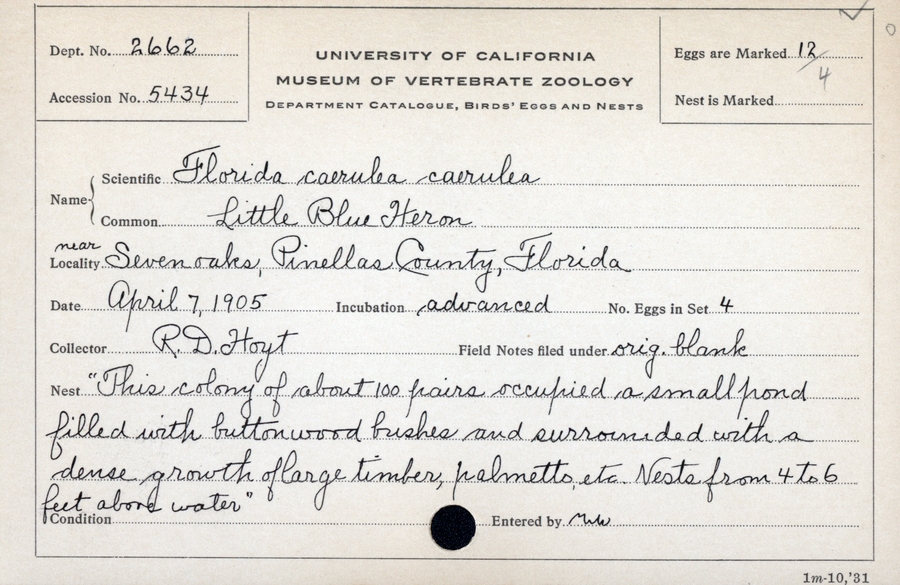 Dept. No. 2662
Accession No. 5434
UNIVERSITY OF CALIFORNIA
MUSEUM OF VERTEBRATE ZOOLOGY
DEPARTMENT CATALOGUE, BIRDS' EGGS AND NESTS
Eggs are Marked 12/4
Nest is Marked
Name { Scientific Florida caerulea caerulea
Common Little Blue Heron
near
Locality Sevenoaks, Pinellas County, Florida
Date April 7, 1905 Incubation advanced No. Eggs in Set 4
Collector R. D. Hoyt Field Notes filed under orig. blank
Nest "This colony of about 100 pairs occupied a small pond
filled with buttonwood bushes and surrounded with a
dense growth of large timber, palmetto, etc. Nests from 4 to 6
feet above water"
Condition Entered by
1m-10,'31